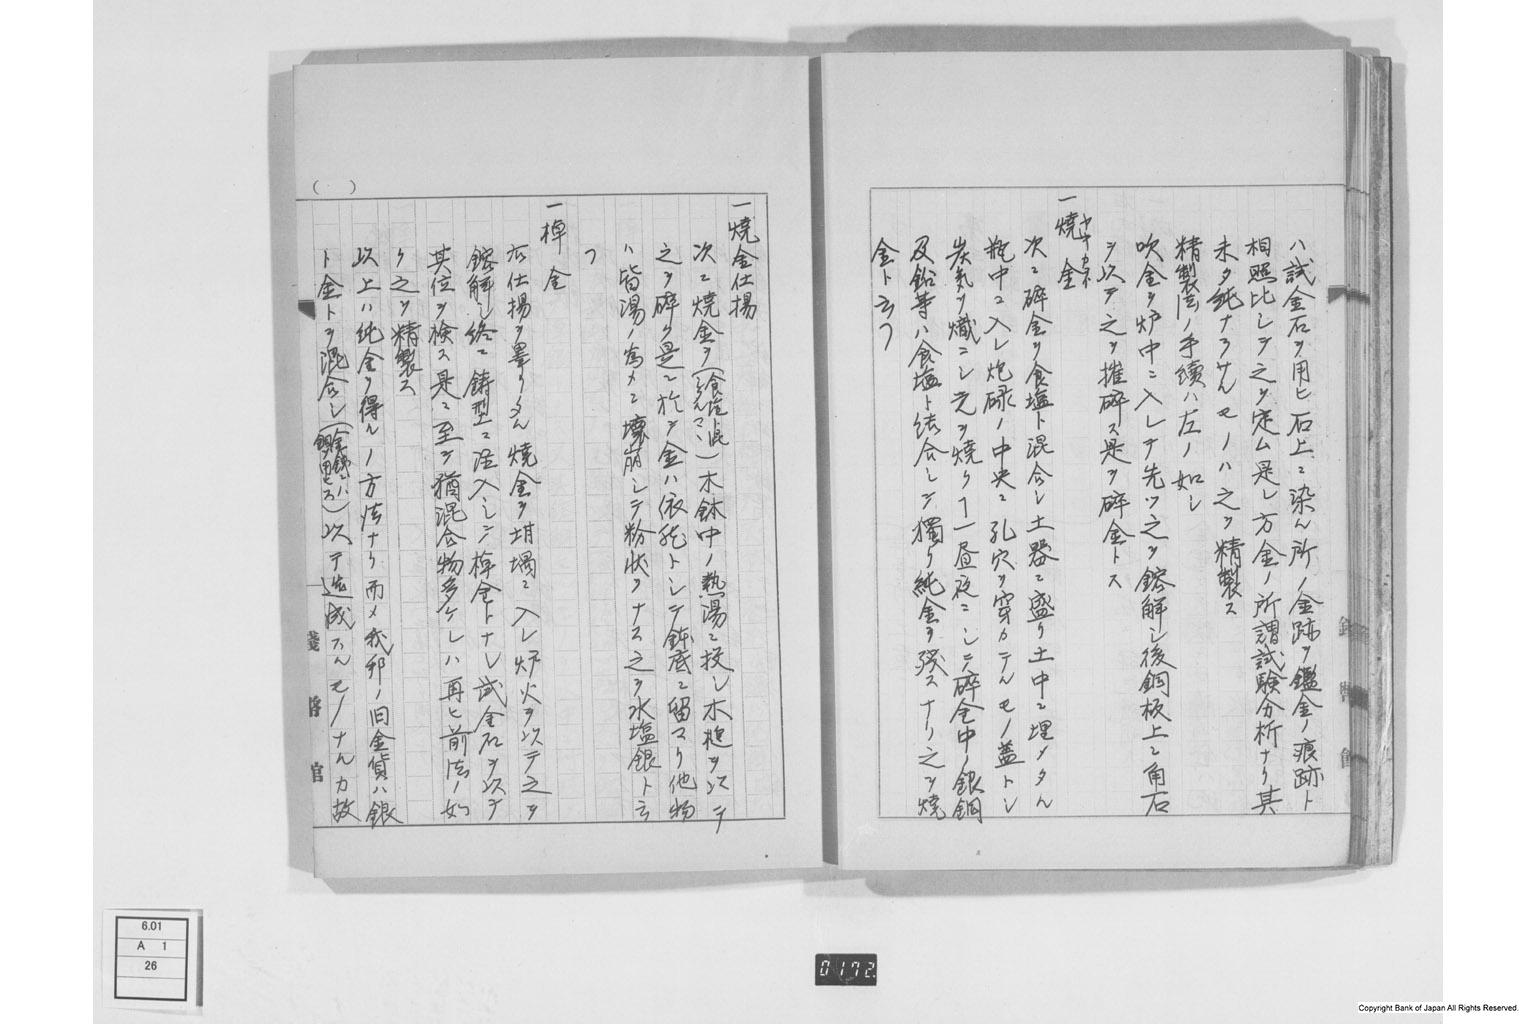 ハ試金石ヲ用ヒ石上ニ染ん所ノ金跡ヲ鑑金ノ痕跡ト
相照比シテ之ヲ定ム是レ方金ノ所謂試験分析ナリ其
未タ純ナラサんモノハ之ヲ精製ス
精製法ノ手續ハ左ノ如シ
吹金ヲ炉中ニ入レテ先ツ之ヲ鎔解シ後銅板上ニ角石
ヲ以テ之ヲ摧碎ス是ヲ碎金トス
一燒金
次ニ碎金ヲ食塩ト混合シ土器ニ盛リ土中ニ埋メタん
瓶中ニ入レ炮碌ノ中央ニ孔穴ヲ穿カテんモノ蓋トシ
炭気ヲ熾ニシ之ヲ燒クヿ一昼夜ニシテ碎金中ノ銀銅
及鉛等ハ食塩ト結合シテ獨リ純金ヲ残スナリ之ヲ燒
金ト云フ
一燒金仕揚
次ニ燒金ヲ(食塩ト混シタんマヽ)木鉢中ノ熱湯ニ投シ木槌ヲ以テ
之ヲ碎ク是ニ於テ金ハ依然トシテ鉢底ニ留マリ他物
ハ皆湯ノ為メニ壊崩シテ粉状ヲナス之ヲ水塩銀ト云
フ
一棹金
右仕揚ヲ畢リタん燒金ヲ坩堝ニ入レ炉火ヲ以テ之ヲ
鎔解シ終ニ鋳型ニ注入シテ棹金トナし試金石ヲ以テ
其位ヲ検ス是ニ至テ猶混合物多ケレハ再ヒ前法ノ如
ク之ヲ精製ス
以上ハ純金ヲ得ルノ方法ナリ而メ我邦ノ旧金貨ハ銀
ト金トヲ混合シ以テ造成スんモノナんカ故
( )
錢幣官
6.01
A 1
26
0172
Copyright Bank of Japan All Rights Reserved.